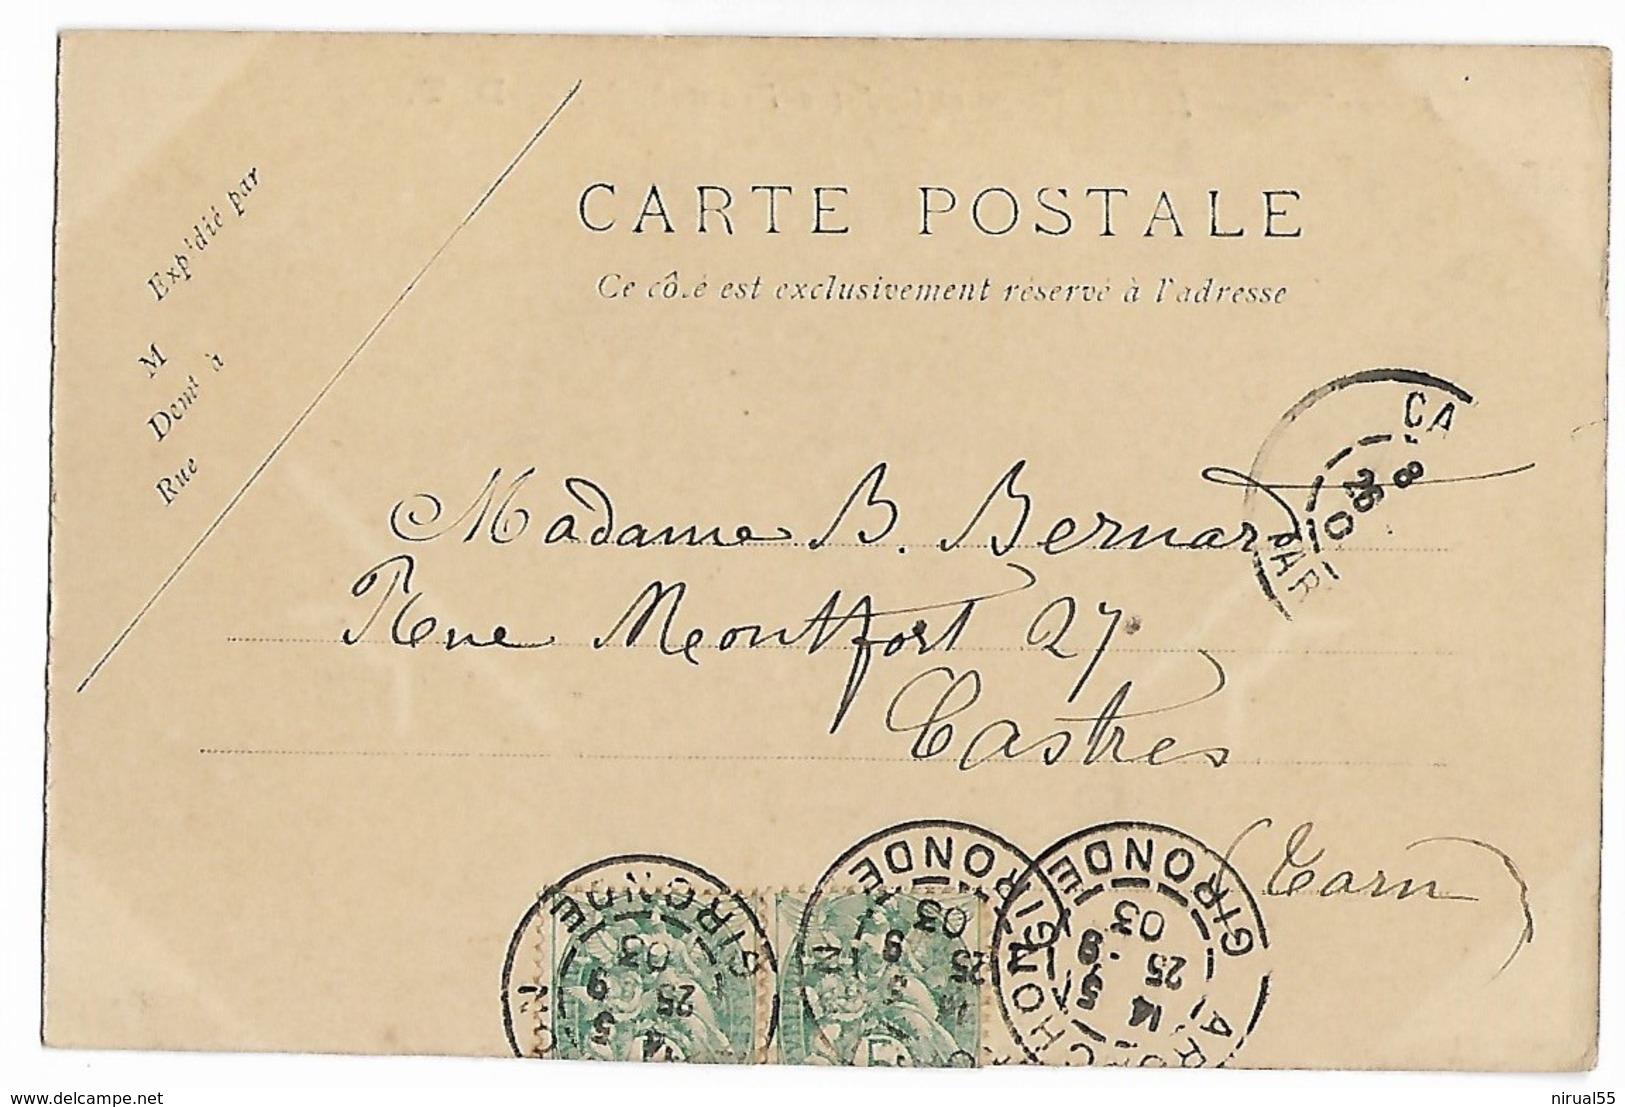 CARTE POSTALE
Ce côté est exclusivement réservé à l'adresse
Expédié par
M
Demt à
Rue
CA
8
26
TAR
Madame B. Bernard
Rue Montfort 27
Castres
(Tarn)
GIRONDE
03
25 9
14 5
GIRONDE
03
25 9
GIRONDE
03
25 9
14 5
ARCACHON
www.delcampe.net
nirual55